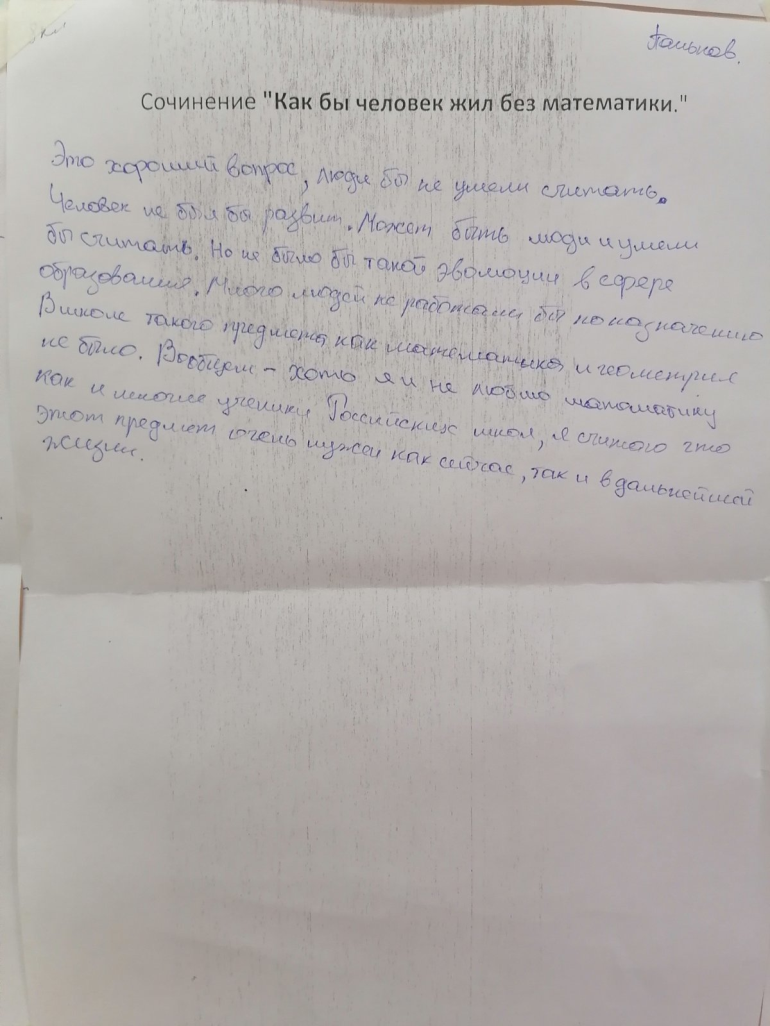 Сочинение "Как бы человек жил без математики."
Это хороший вопрос, люди бы не умели считать.
Человек не был бы развит. Может быть люди и умели
бы считать. Но не было бы такой эволюции в сфере
образования. Много людей не работали бы по назначению
В школе такого предмета, как математика и геометрия
не было. Вообщем - хоть я и не люблю математику
как и многие ученики Российских школ, я считаю что
этот предмет очень нужен как сейчас, так и в дальнейшей
жизни.